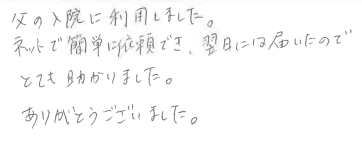 父の入院に利用しました。
ネットで簡単に依頼でき、翌日には届いたので
とても助かりました。
ありがとうございました。